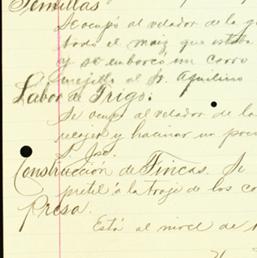 Semillas
Se ocupó al velador de la g
todo el maiz que estaba
y se embarcó un carro
mejillo al Sr. Aquilino
Labor de Trigo.
Se ocupó al velador de la
y hacinar un poco
S. José.
Construcción de Fincas. Se
pretil á la troje de los co
Presa.
Está al nivel de